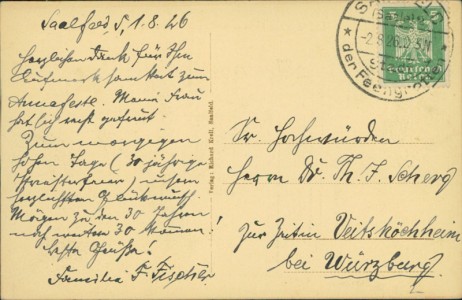 Saalfeld, S, 1.8.26
Herzlichen Dank für Ihre
Aufmerksamkeit zum
Annafeste. Meine Frau
hat sich sehr gefreut.
Zum morgigen
hohen Tage (30 jährige
Priesterfeier) unsern
herzlichsten Glückwunsch.
Mögen zu den 30 Jahren
noch weitere 30 kommen!
Beste Grüße!
Familie F. Fischer
Verlag: Richard Kreil, Saalfeld.
-2.8.26
der Feengrotten
Deutsches
Reich
5
Sr. Hochwürden
Herrn Dr. Th. J. Scherg
Zur Zeit in Veitshöchheim
bei Würzburg